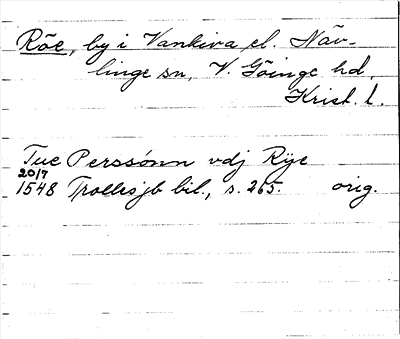 Röe, by i Vankiva el. Näv-
linge sn, V. Göinge hd,
Krist. l.
Tue Perssønn vdj Rÿe
20/7
1548 Trollesjb bil., s. 265. orig.